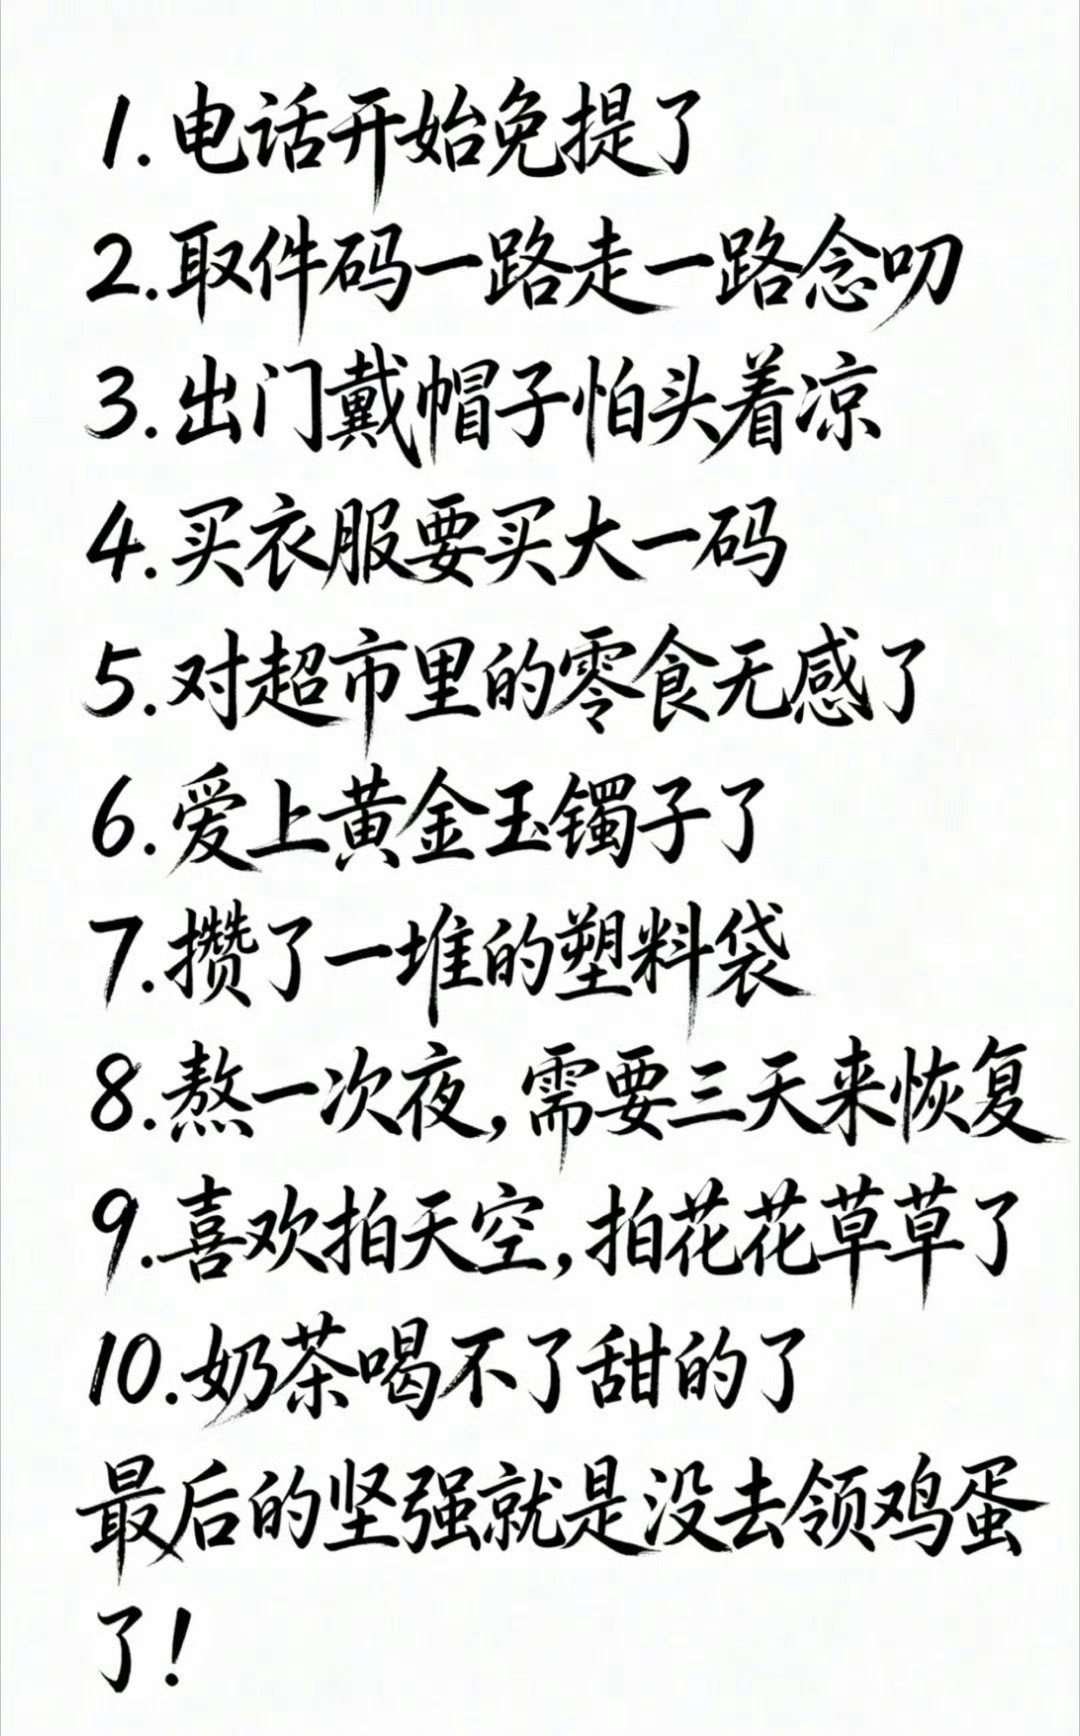 1.电话开始免提了
2.取件码一路走一路念叨
3.出门戴帽子怕头着凉
4.买衣服要买大一码
5.对超市里的零食无感了
6.爱上黄金玉镯子了
7.攒了一堆的塑料袋
8.熬一次夜,需要三天来恢复
9.喜欢拍天空,拍花花草草了
10.奶茶喝不了甜的了
最后的坚强就是没去领鸡蛋
了!